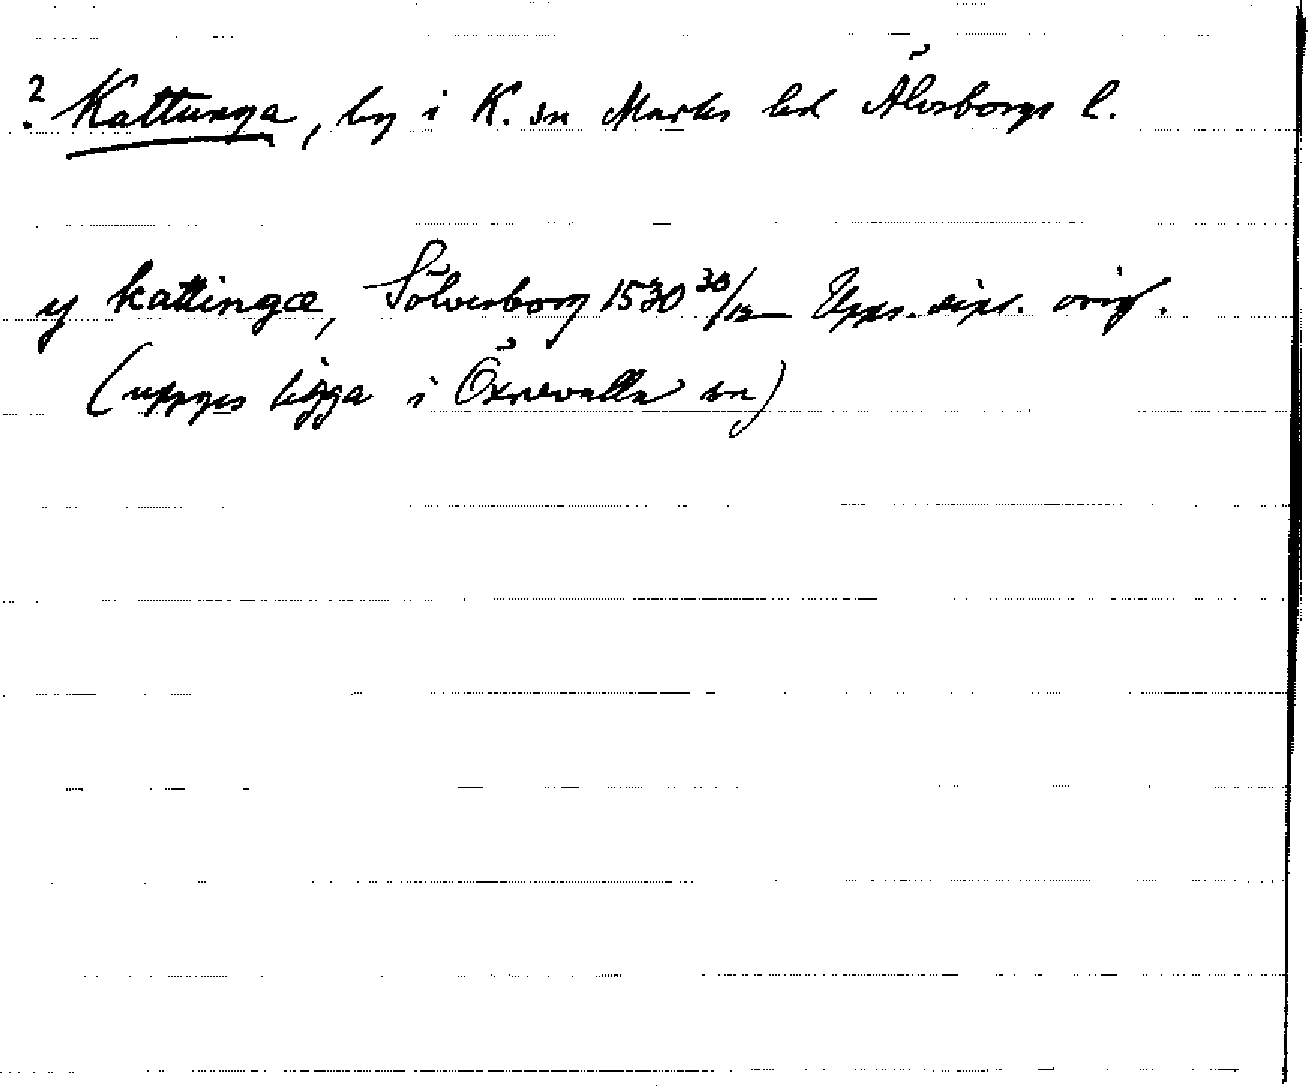 ? Kattunga, by i K. sn Marks hd Älvsborgs l.
y kattingæ, Sölvesborg 1530 30/12 Upps. dipl. orig.
(uppges ligga i Öxnevalla sn)